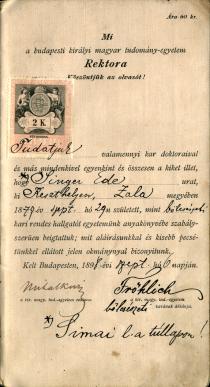 Ára 60 kr.
Mi
a budapesti királyi magyar tudomány-egyetem
Rektora
Köszöntjük az olvasót!
2 K.
Tudatjuk valamennyi kar doktoraival
és más mindenkivel egyenkint és összesen a kiket illet,
hogy *) Singer Ede urat,
ki Keszthelyen, Zala megyében
1879 év sept. hó 29n született, mint bölcsészet
kari rendes hallgatót egyetemünk anyakönyvébe szabály-
szerüen beigtattuk; mit aláirásunkkal és kisebb pecsé-
tünkkel ellátott jelen okmánynyal bizonyitunk.
Kelt Budapesten, 1898 évi sept. hó napján.
Fröhlich
a kir. magy. tud.-egyetem rektora
bölcsészeti
a kir. magy. tud. egyetem
karának dékánja.
*) Simai l. a túllapon!